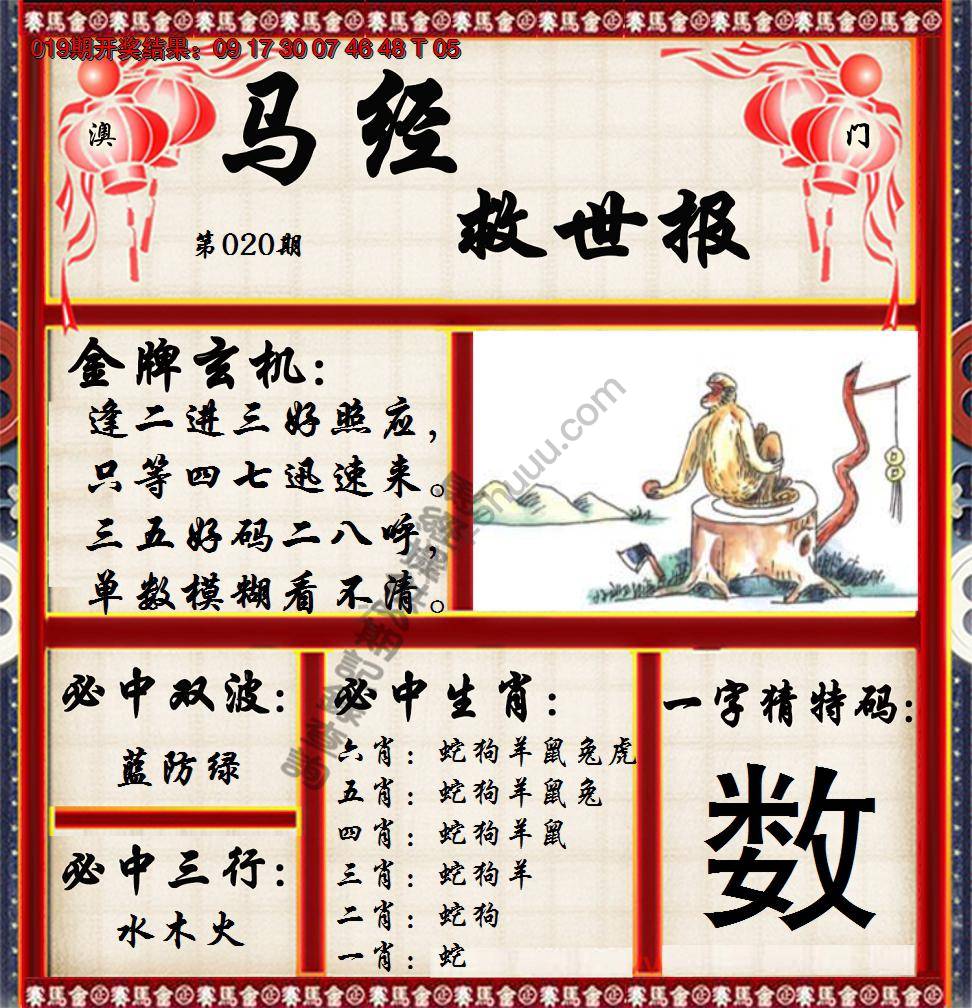 赛馬會 赛馬會 赛馬會 赛馬會 赛馬會 赛馬會 赛馬會 赛馬會
019期开奖结果：09 17 30 07 46 48 T 05
澳
门
马经
救世报
第020期
金牌玄机：
逢二进三好照应，
只等四七迅速来。
三五好码二八呼，
单数模糊看不清。
必中双波：
蓝防绿
必中三行：
水木火
必中生肖：
六肖：蛇狗羊鼠兔虎
五肖：蛇狗羊鼠兔
四肖：蛇狗羊鼠
三肖：蛇狗羊
二肖：蛇狗
一肖：蛇
一字猜特码：
数